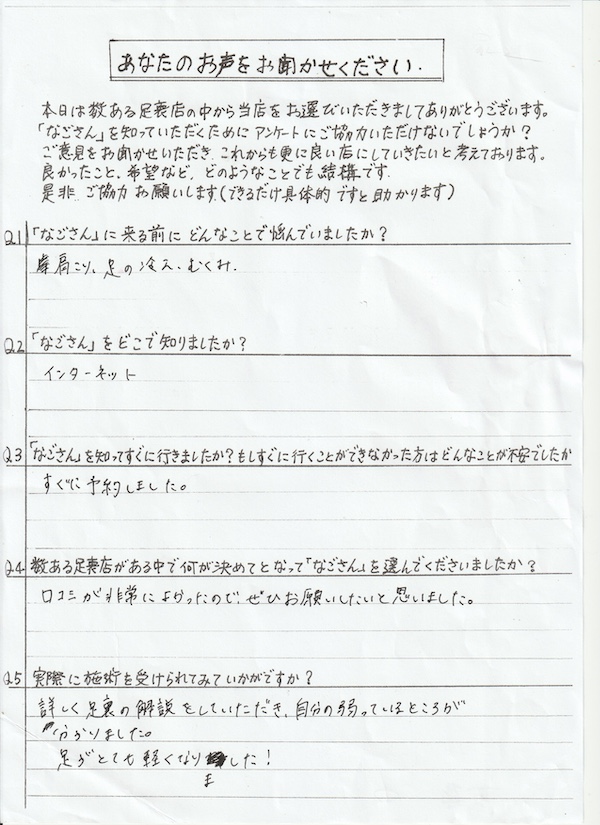 あなたのお声をお聞かせください.
本日は数ある足裏店の中から当店をお選びいただきましてありがとうございます。
「なごさん」を知っていただくためにアンケートにご協力いただけないでしょうか?
ご意見をお聞かせいただき、これからも更に良い店にしていきたいと考えております。
良かったこと、希望など、どのようなことでも結構です.
是非、ご協力お願いします(できるだけ具体的ですと助かります)
Q1 「なごさん」に来る前にどんなことで悩んでいましたか?
肩こり、足の冷え、むくみ.
Q2 「なごさん」をどこで知りましたか?
インターネット
Q3 「なごさん」を知ってすぐに行きましたか?もしすぐに行くことができなかった方はどんなことが不安でしたか
すぐに予約しました。
Q4 数ある足裏店がある中で何が決めてとなって「なごさん」を選んでくださいましたか?
口コミが非常によかったので、ぜひお願いしたいと思いました。
Q5 実際に施術を受けられてみていかがですか?
詳しく足裏の解説をしていただき、自分の弱っているところが
分かりました。
足がとても軽くなりました!